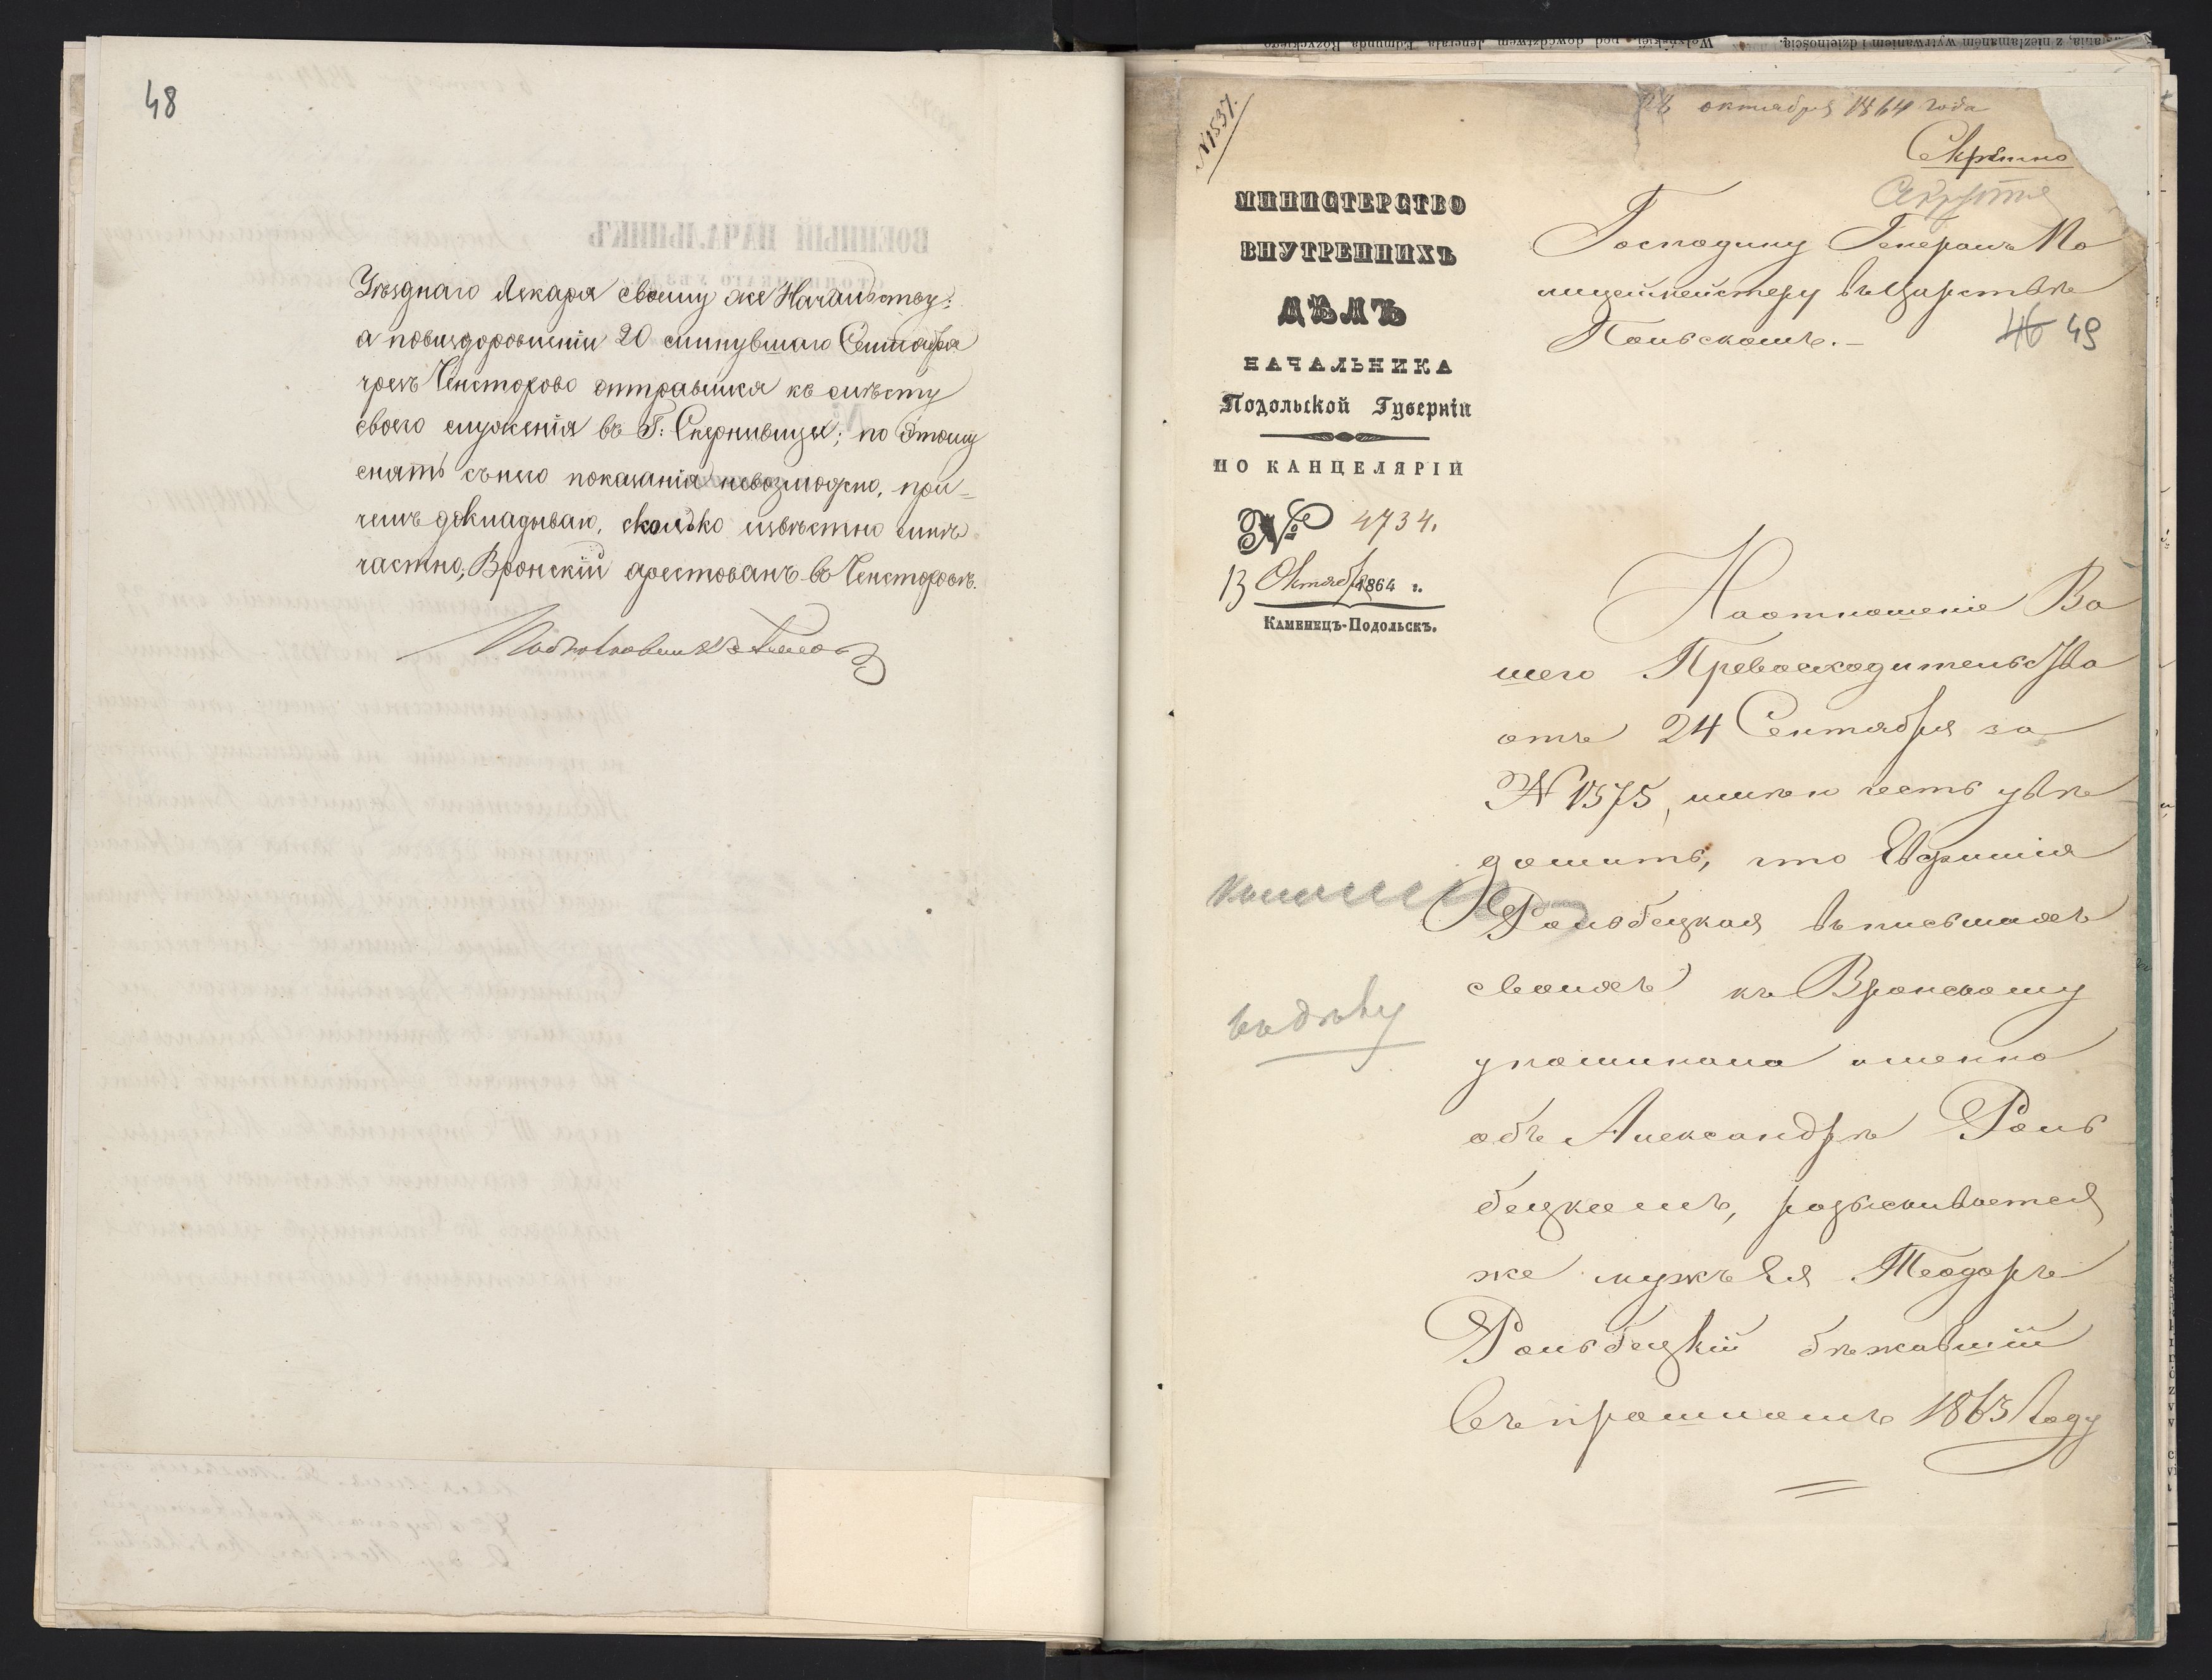 48
Уѣзднаго Лекаря своему же Начальству;
а повыздоровленіи 20 минувшаго Сентября
чрезъ Ченстохово отправился къ мѣсту
своего служенія въ Г: Скерневицы; по этому
снять съ него показанія невозможно, при-
чемъ докладываю, сколько извѣстно мнѣ
частно, Вронскій арестованъ въ Ченстоховѣ.
Подполковникъ
№1537.
28 октября 1864 года
Секретно
МИНИСТЕРСТВО
ВНУТРЕННИХЪ
ДѢЛЪ
НАЧАЛЬНИКА
Подольской Губерніи
ПО КАНЦЕЛЯРІИ
№ 4734.
13 Октября 1864 г.
Каменецъ-Подольскъ.
Господину Генералъ По
лицейместеру въ Царствѣ
Польскомъ.-
46 49
На отношеніе Ва
шего Превосходительства
отъ 24 Сентября за
№ 1575, имѣю честь увѣ
домить, что Евфимія
Рольбецкая въ письмахъ
своихъ къ Вронскому
упоминала именно
объ Александрѣ Роль
бецкомъ, розыскивается
же мужъ Ея Теодоръ
Рольбецкій бѣжавшій
въ прошломъ 1863 Году
къ дѣлу